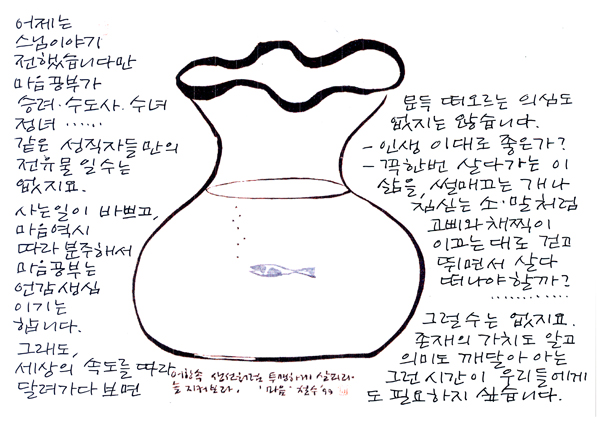 어제는
스님이야기
전했습니다만
마음공부가
승려·수도사·수녀
정녀 ······
같은 성직자들만의
전유물 일수는
없지요.
사는일이 바쁘고,
마음역시
따라 분주해서
마음공부는
언감생심
이기는
합니다.
그래도,
세상의 속도를 따라
달려가다 보면
문득 떠오르는 의심도
없지는 않습니다.
- 인생 이대로 좋은가?
- 꼭 한번 살다가는 이
삶을, 썰매끄는 개나
짐싣는 소·말처럼
고삐와 채찍이
이끄는 대로 걷고
뛰면서 살다
떠나야할까?
············
그럴수는 없지요.
존재의 가치도 알고
의미도 깨달아 아는
그런 시간이 우리들에게
도 필요하지 싶습니다.
어항속 생선처럼 투명하게 살피리.
늘 지켜보라, '마음' 철수 '97